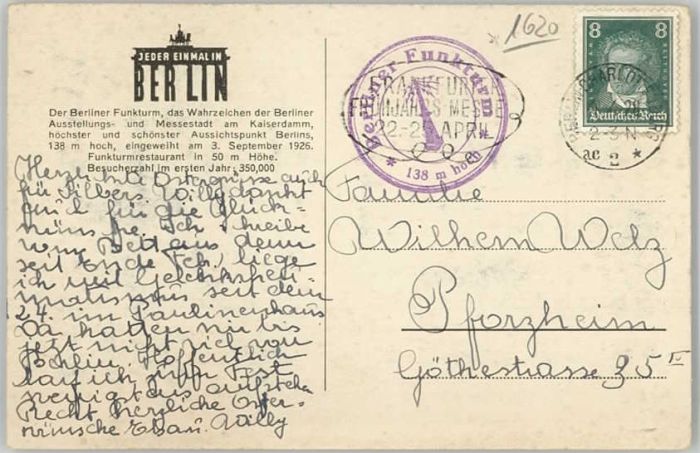 JEDER EINMAL IN
BERLIN
Der Berliner Funkturm, das Wahrzeichen der Berliner
Ausstellungs- und Messestadt am Kaiserdamm,
höchster und schönster Aussichtspunkt Berlins,
138 m hoch, eingeweiht am 3. September 1926.
Funkturmrestaurant in 50 m Höhe.
Besucherzahl im ersten Jahr: 350,000
Herzlichste Ostergrüsse auch
für Silbers. Willy dankt
auch für die Glück-
wünsche. Ich schreibe
vom Bett aus, denn
seit Ende Feb. liege
ich mit Gelenkrheu-
matismus, seit dem
24. im Paulinenhaus
Da hatten wir bis
jetzt nicht viel von
Hoffentlich
darf ich zum Fest
wenigstens aufstehen
Recht herzliche Oster-
wünsche Willy
1620
Berliner Funkturm
* 138 m hoch *
FRANKFURTER
FRÜHJAHRS-MESSE
22-25 APRIL
8 8
Deutsches Reich
CHARLOTTENBURG
2-3 N
* 2 *
Familie
Wilhelm Welz
Pforzheim
Göthestrasse 35 IV